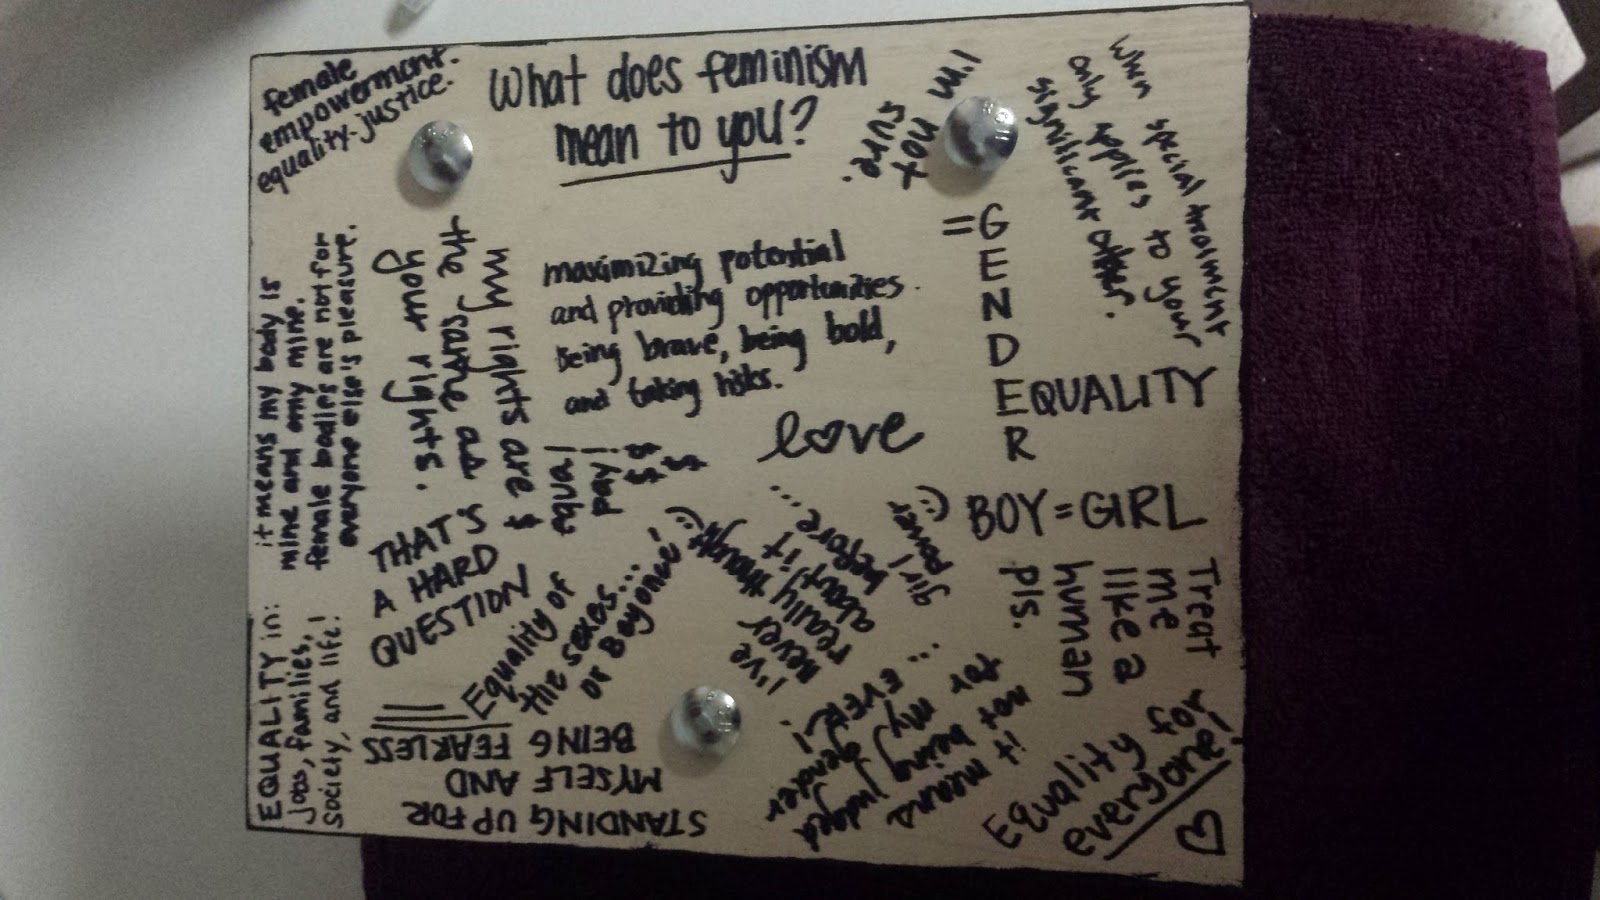 What does feminism
mean to you?
female
empowerment.
equality-justice.
I'm not
sure.
When special treatment
only applies to your
significant other.
it means my body is
mine and only mine.
female bodies are not for
everyone else's pleasure.
my rights are
the same as
your rights.
maximizing potential
and providing opportunities.
Being brave, being bold,
and taking risks.
=G
E
N
D
EQUALITY
R
love
$ equal
pay! $
$ $
$ $
THAT'S
A HARD
QUESTION
BOY = GIRL
girl
power
:)
I've
never
really thought
about it
before...
:)
Equality of
the sexes...
or Beyonce!
EQUALITY in:
jobs, families,
society, and life!
STANDING UP FOR
MYSELF AND
BEING FEARLESS
it means
not being judged
for my gender
... EVER!
Treat
me
like a
human
pls.
Equality of
everyone!